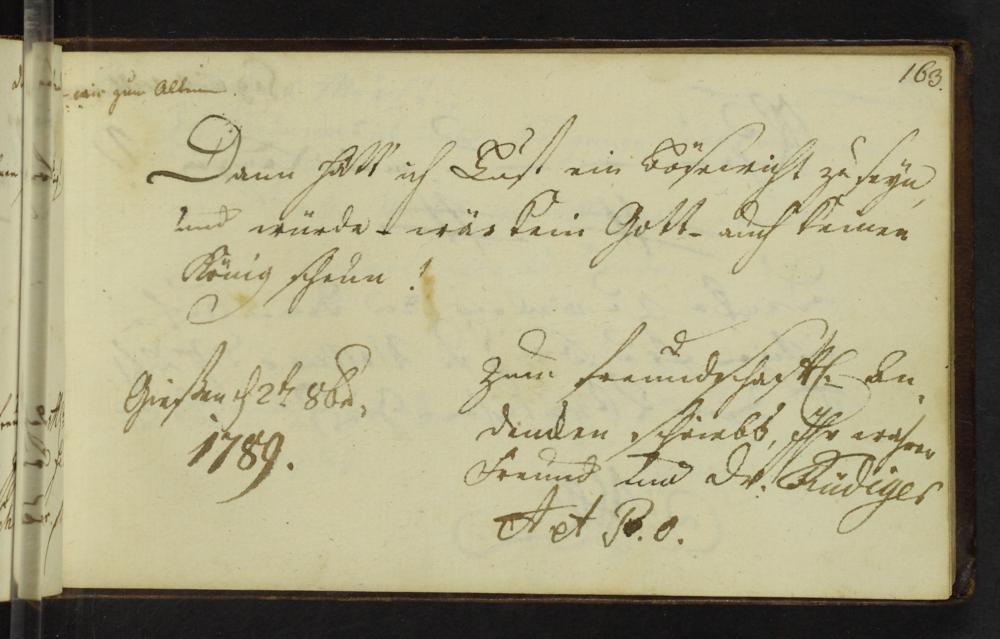 163.
wir zum Altem
Dann hätt ich Lust ein Bösewicht zu seyn,
und würde - wär kein Gott - auch keinen
König scheun!
Giesen d 2t 8br.
1789.
Zum freundschaftl. An
denken schriebs, Ihr wahrer
Freund und Dr. Rüdiger
A et P. o.